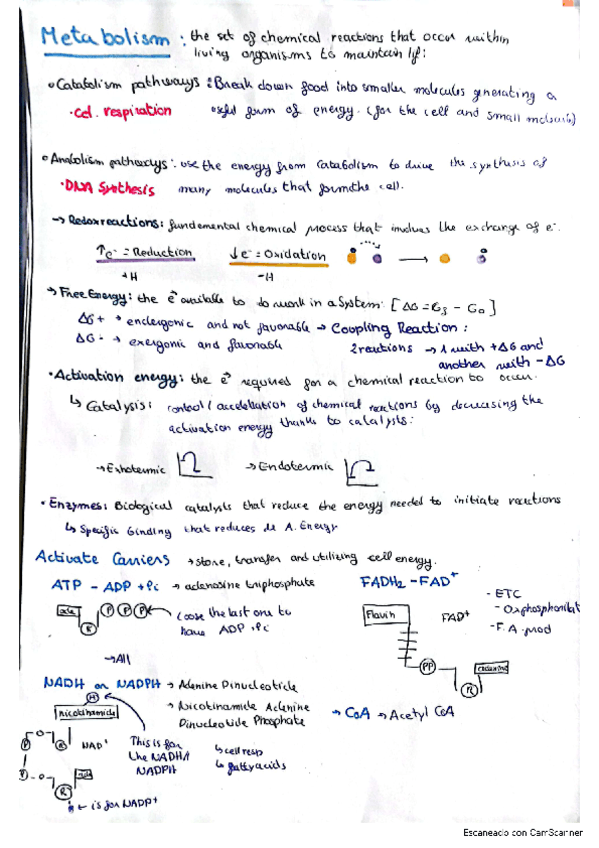 Metabolism: the set of chemical reactions that occur within
living organisms to maintain lif:
Catabolism pathways: Break down food into smaller molecules generating a
• Cel. respiration useful form of energy. (for the cell and small molecules)
Anabolism pathways: use the energy from catabolism to drive the synthesis of
• DNA Synthesis many molecules that form the cell.
→ Redox reactions: fundemental chemical process that involves the exchange of e-.
↑e- = Reduction ↓e- = Oxidation
+H -H
→ Free Energy: the e available to do work in a system. [ΔG = G - G]
ΔG + → endergonic and not favorable → Coupling Reaction:
ΔG - → exergonic and favorable 2 reactions → 1 with +ΔG and
another with -ΔG
• Activation energy: the e required for a chemical reaction to occur.
↳ Catalysis: control / acceleration of chemical reactions by decreasing the
activation energy thanks to catalysts.
→ Exhotermic → Endotermic
• Enzymes: Biological catalysts that reduce the energy needed to initiate reactions
↳ Specific binding that reduces de A. Energy
Activate Carriers → store, transfer and utilizing cell energy.
ATP - ADP + Pi → adenosine triphosphate FADH2 - FAD+
- ETC
P P P Loose the last one to Flavin FAD+ - Oxphosphorilat
R have ADP + Pi - F.A. mod
→ All PP
R
NADH or NADPH → Adenine Dinucleotide
H → Nicotinamide Adenine → CoA → Acetyl CoA
nicotinamide Dinucleotide Phosphate
P R NAD+ This is for ↳ cell resp
the NADH/ ↳ fatty acids
P NADPH
R
← is for NADP+
Escaneado con CamScanner